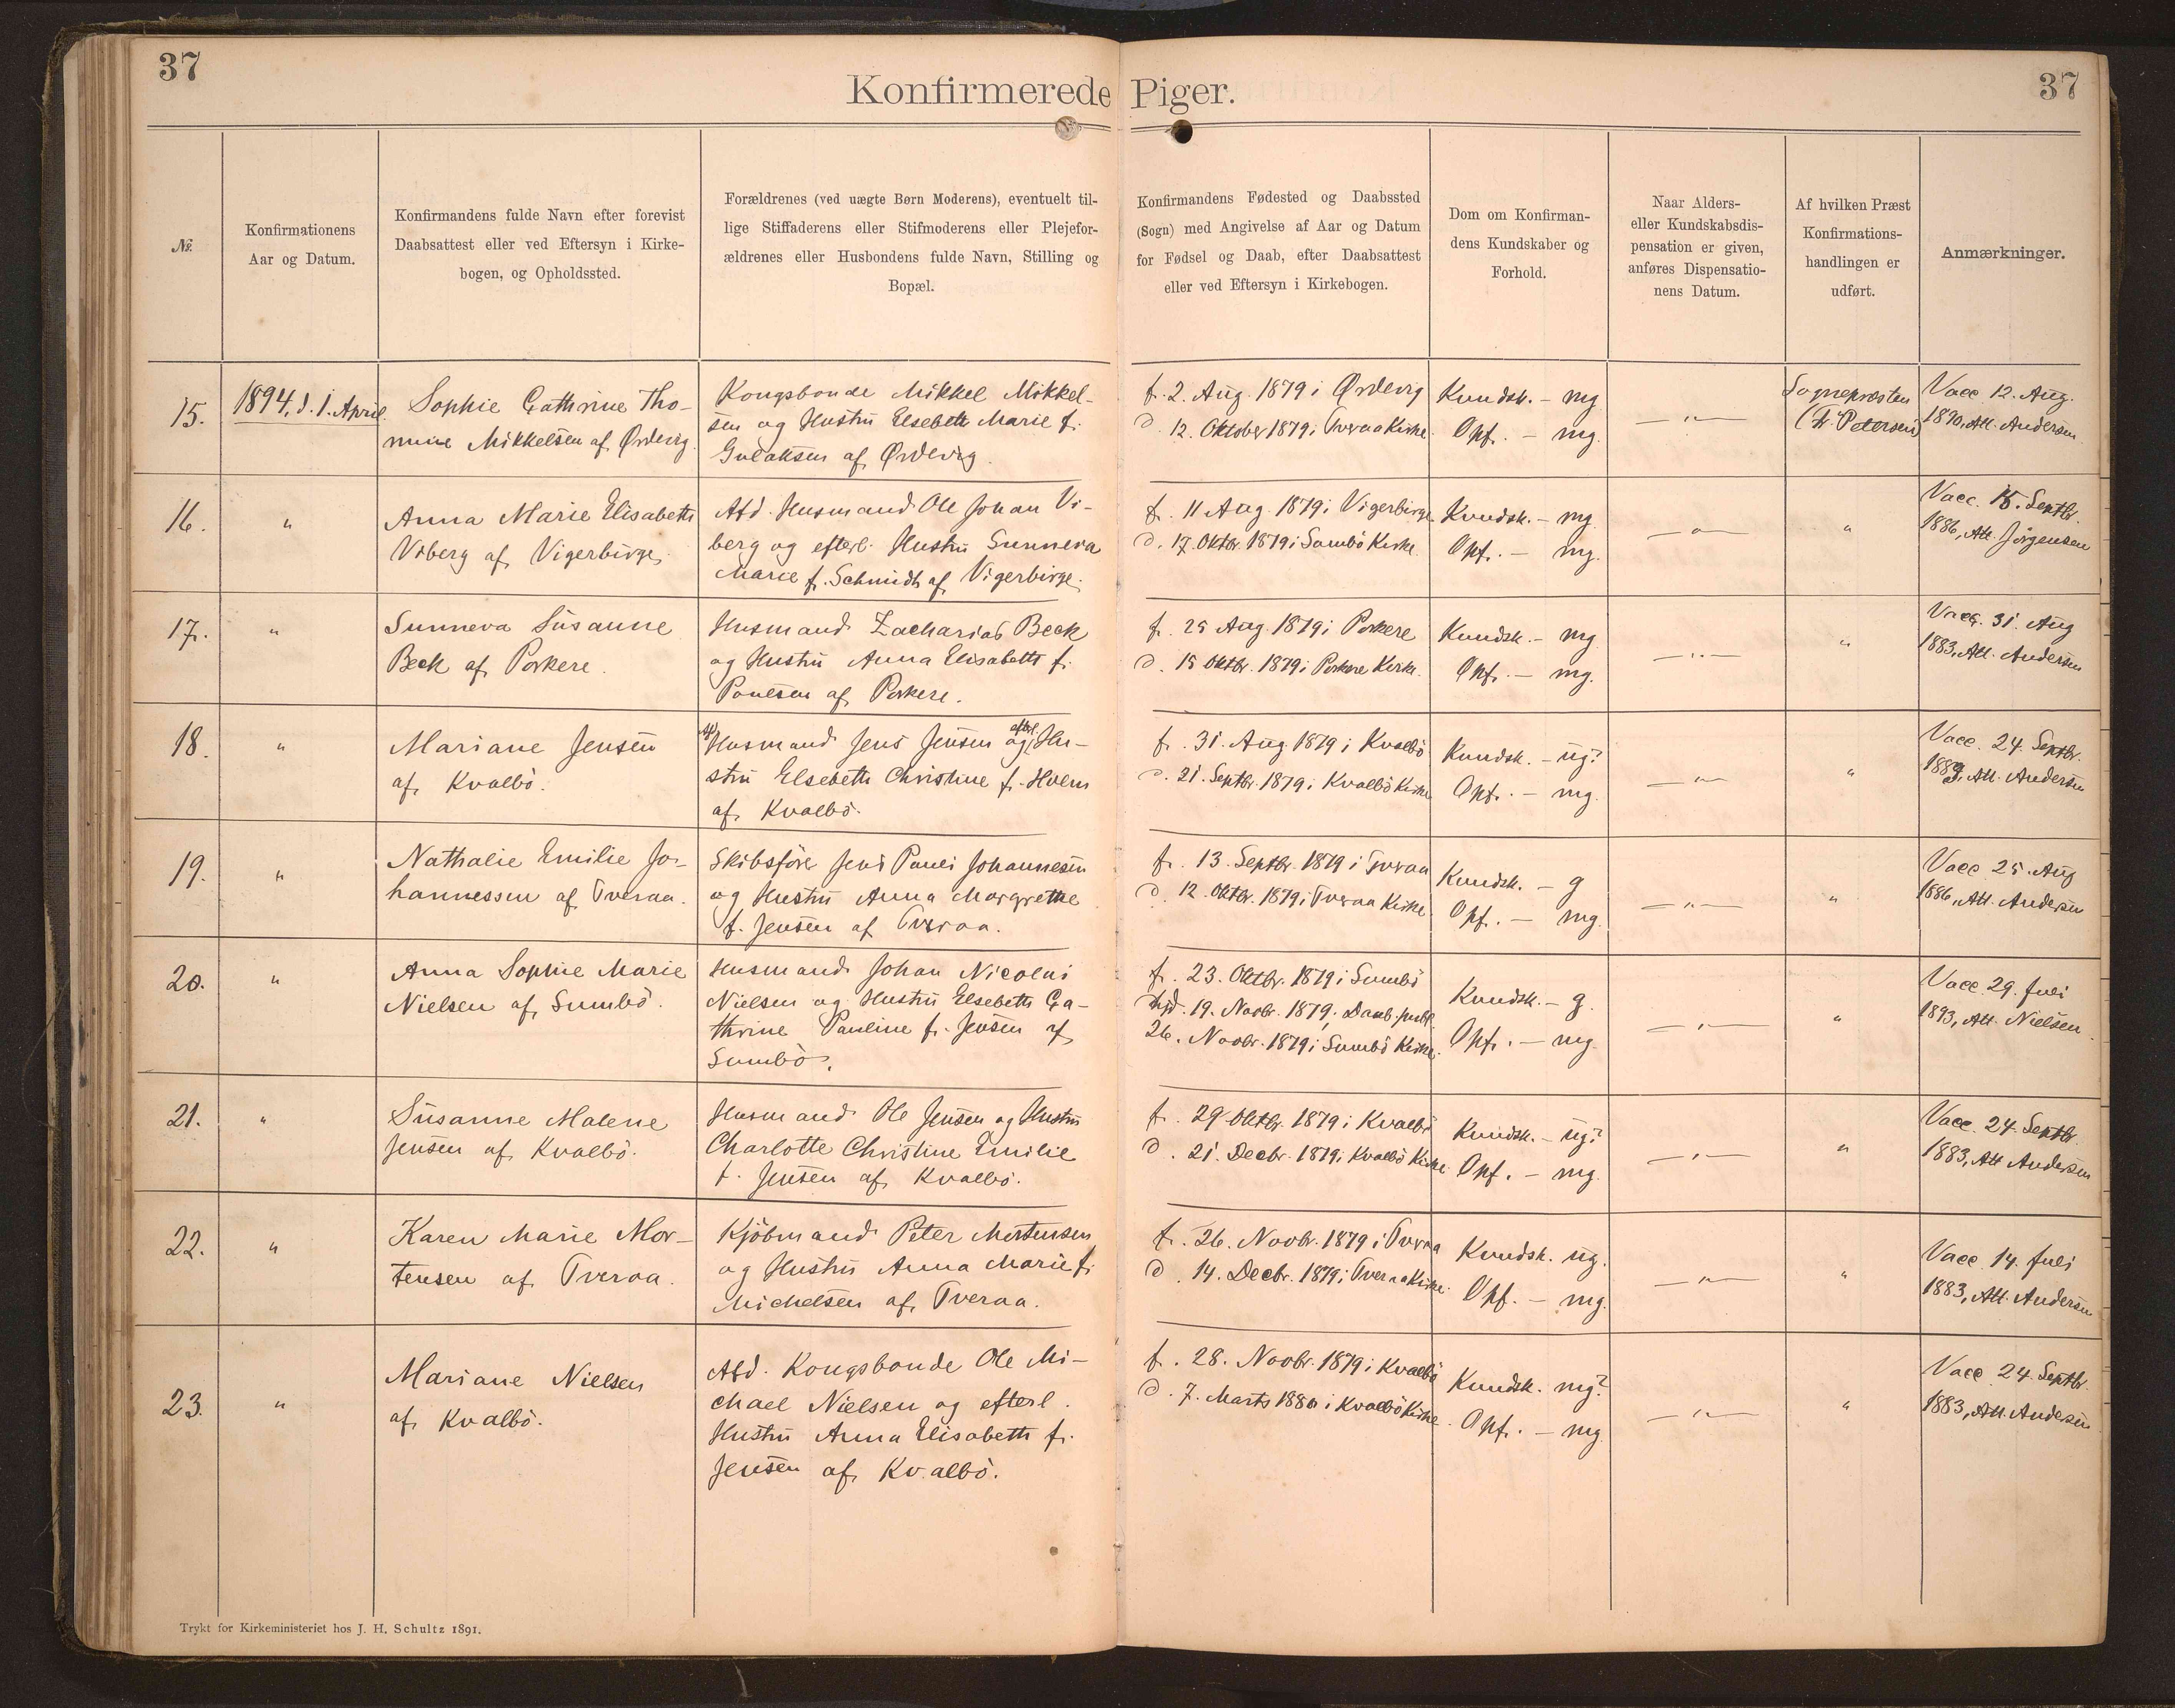 37
Konfirmerede Piger.
37
№
Konfirmationens
Aar og Datum.
Konfirmandens fulde Navn efter forevist
Daabsattest eller ved Eftersyn i Kirke-
bogen, og Opholdssted.
Forældrenes (ved uægte Børn Moderens), eventuelt til-
lige Stiffaderens eller Stifmoderens eller Plejefor-
ældrenes eller Husbondens fulde Navn, Stilling og
Bopæl.
Konfirmandens Fødested og Daabssted
(Sogn) med Angivelse af Aar og Datum
for Fødsel og Daab, efter Daabsattest
eller ved Eftersyn i Kirkebogen.
Dom om Konfirman-
dens Kundskaber og
Forhold.
Naar Alders-
eller Kundskabsdis-
pensation er given,
anføres Dispensatio-
nens Datum.
Af hvilken Præst
Konfirmations-
handlingen er
udført.
Anmærkninger.
15.
1894, d. 1. April.
Sophie Cathrine Tho-
mine Mikkelsen af Ørdevig
Kongsbonde Mikkel Mikkel-
sen og Hustru Elsebeth Marie f.
Guläksen af Ørdevig.
f. 2. Aug. 1879 i Ørdevig
d. 12. Oktober 1879 i Tveraa Kirke.
Kundsk. — mg
Opf. — mg.
—„—
Sognepræsten
Petersen)
Vacc 12. Aug.
1890, Att. Andersen
16.
„
Anna Marie Elisabeth
Viberg af Vigerbirge.
Afd. Husmand Ole Johan Vi-
berg og efterl. Hustru Sunneva
Marie f. Schmidt af Vigerbirge.
f. 11 Aug. 1879 i Vigerbirge
d. 17. Oktbr. 1879 i Sumbö Kirke.
Kundsk. — mg.
Opf. — mg.
—„—
„
Vacc. 15. Septbr.
1886, Att. Jörgensen
17.
„
Sunneva Susanne
Beck af Porkere.
Husmand Zacharias Beck
og Hustru Anna Elisabeth f.
Poulsen af Porkere.
f. 25 Aug. 1879 i Porkere
d. 15 Oktbr. 1879 i Porkere Kirke.
Kundsk. — mg
Opf. — mg.
—„—
„
Vacc. 31. Aug
1883, Att. Andersen
18.
„
Mariane Jensen
af Kvalbö.
Afd Husmand Jens Jensen og efterl. Hu-
stru Elsebeth Christine f. Holm
af Kvalbö.
f. 31. Aug. 1879 i Kvalbö
d. 21. Septbr. 1879 i Kvalbö Kirke
Kundsk. — ug?
Opf. — mg.
—„—
„
Vacc. 24. Septbr.
1883, Att. Andersen
19.
„
Nathalie Emilie Jo-
hannessen af Tveraa.
Skibsförer Jens Pauli Johannesen
og Hustru Anna Margrethe
f. Jensen af Tveraa.
f. 13. Septbr. 1879 i Tveraa
d. 12. Oktbr. 1879 i Tveraa Kirke.
Kundsk. — g
Opf. — mg.
—„—
„
Vacc 25. Aug
1886, Att. Andersen
20.
„
Anna Sophie Marie
Nielsen af Sumbö.
Husmand Johan Nicolai
Nielsen og Hustru Elsebeth Ca-
thrine Pauline f. Jensen af
Sumbö.
f. 23. Oktbr. 1879 i Sumbö
hjd. 19. Novbr. 1879; Daab. publ.
26. Novbr. 1879 i Sumbö Kirke.
Kundsk. — g.
Opf. — mg
—„—
„
Vacc 29. Juli
1893, Att. Nielsen.
21.
„
Susanne Malene
Jensen af Kvalbö.
Husmand Ole Jensen og Hustru
Charlotte Christine Emilie
f. Jensen af Kvalbö.
f. 29 Oktbr. 1879 i Kvalbö
d. 21. Decbr. 1879 i Kvalbö Kirke.
Kundsk. — ug?
Opf. — mg.
—„—
„
Vacc. 24. Septbr.
1883, Att Andersen
22.
„
Karen Marie Mor-
tensen af Tveraa.
Kjöbmand Peter Mortensen
og Hustru Anna Marie f.
Michelsen af Tveraa.
f. 26. Novbr. 1879 i Tveraa
d. 14. Decbr. 1879 i Tveraa Kirke.
Kundsk. ug.
Opf. — mg.
—„—
„
Vacc 14. Juli
1883, Att. Andersen
23.
„
Mariane Nielsen
af Kvalbö.
Afd. Kongsbonde Ole Mi-
chael Nielsen og efterl.
Hustru Anna Elisabeth f.
Jensen af Kvalbö.
f. 28. Novbr. 1879 i Kvalbö
d. 7. Marts 1880 i Kvalbö Kirke.
Kundsk. mg?
Opf. — mg.
—„—
„
Vacc 24. Septbr.
1883, Att. Andersen
Trykt for Kirkeministeriet hos J. H. Schultz 1891.